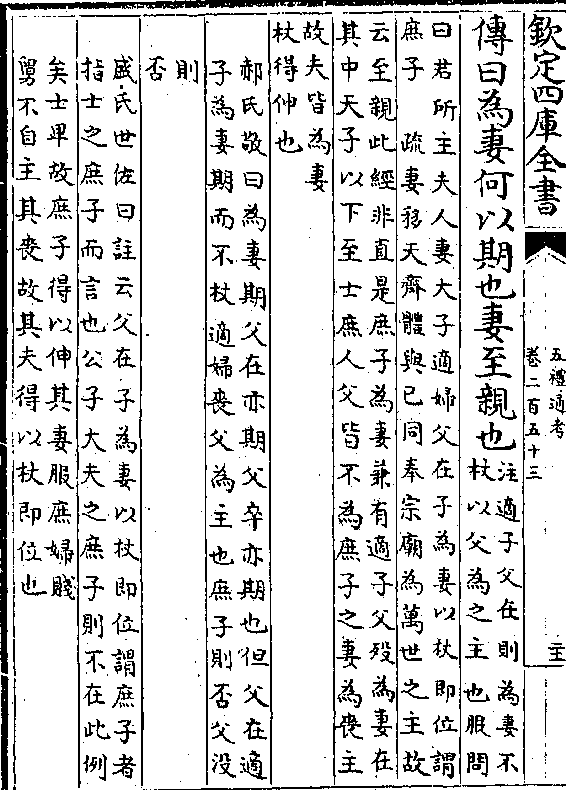 欽定四庫全書
五禮通考
卷二百五十三
傳曰為妻何以期也妻至親也
注適子父在則為妻不
杖以父為之主也服問
曰君所主夫人妻大子適婦父在子為妻以杖即位謂
庶子 疏妻移天齊體與己同奉宗廟為萬世之主故
云至親此經非直是庶子為妻兼有適子父歿為妻在
其中天子以下至士庶人父皆不為庶子之妻為喪主
故夫皆為妻
杖得伸也
郝氏敬曰為妻期父在亦期父卒亦期也但父在適
子為妻期而不杖適婦喪父為主也庶子則否父沒
則
否
盛氏世佐曰註云父在子為妻以杖即位謂庶子者
指士之庶子而言也公子大夫之庶子則不在此例
矣士卑故庶子得以伸其妻服庶婦賤
舅不自主其喪故其夫得以杖即位也